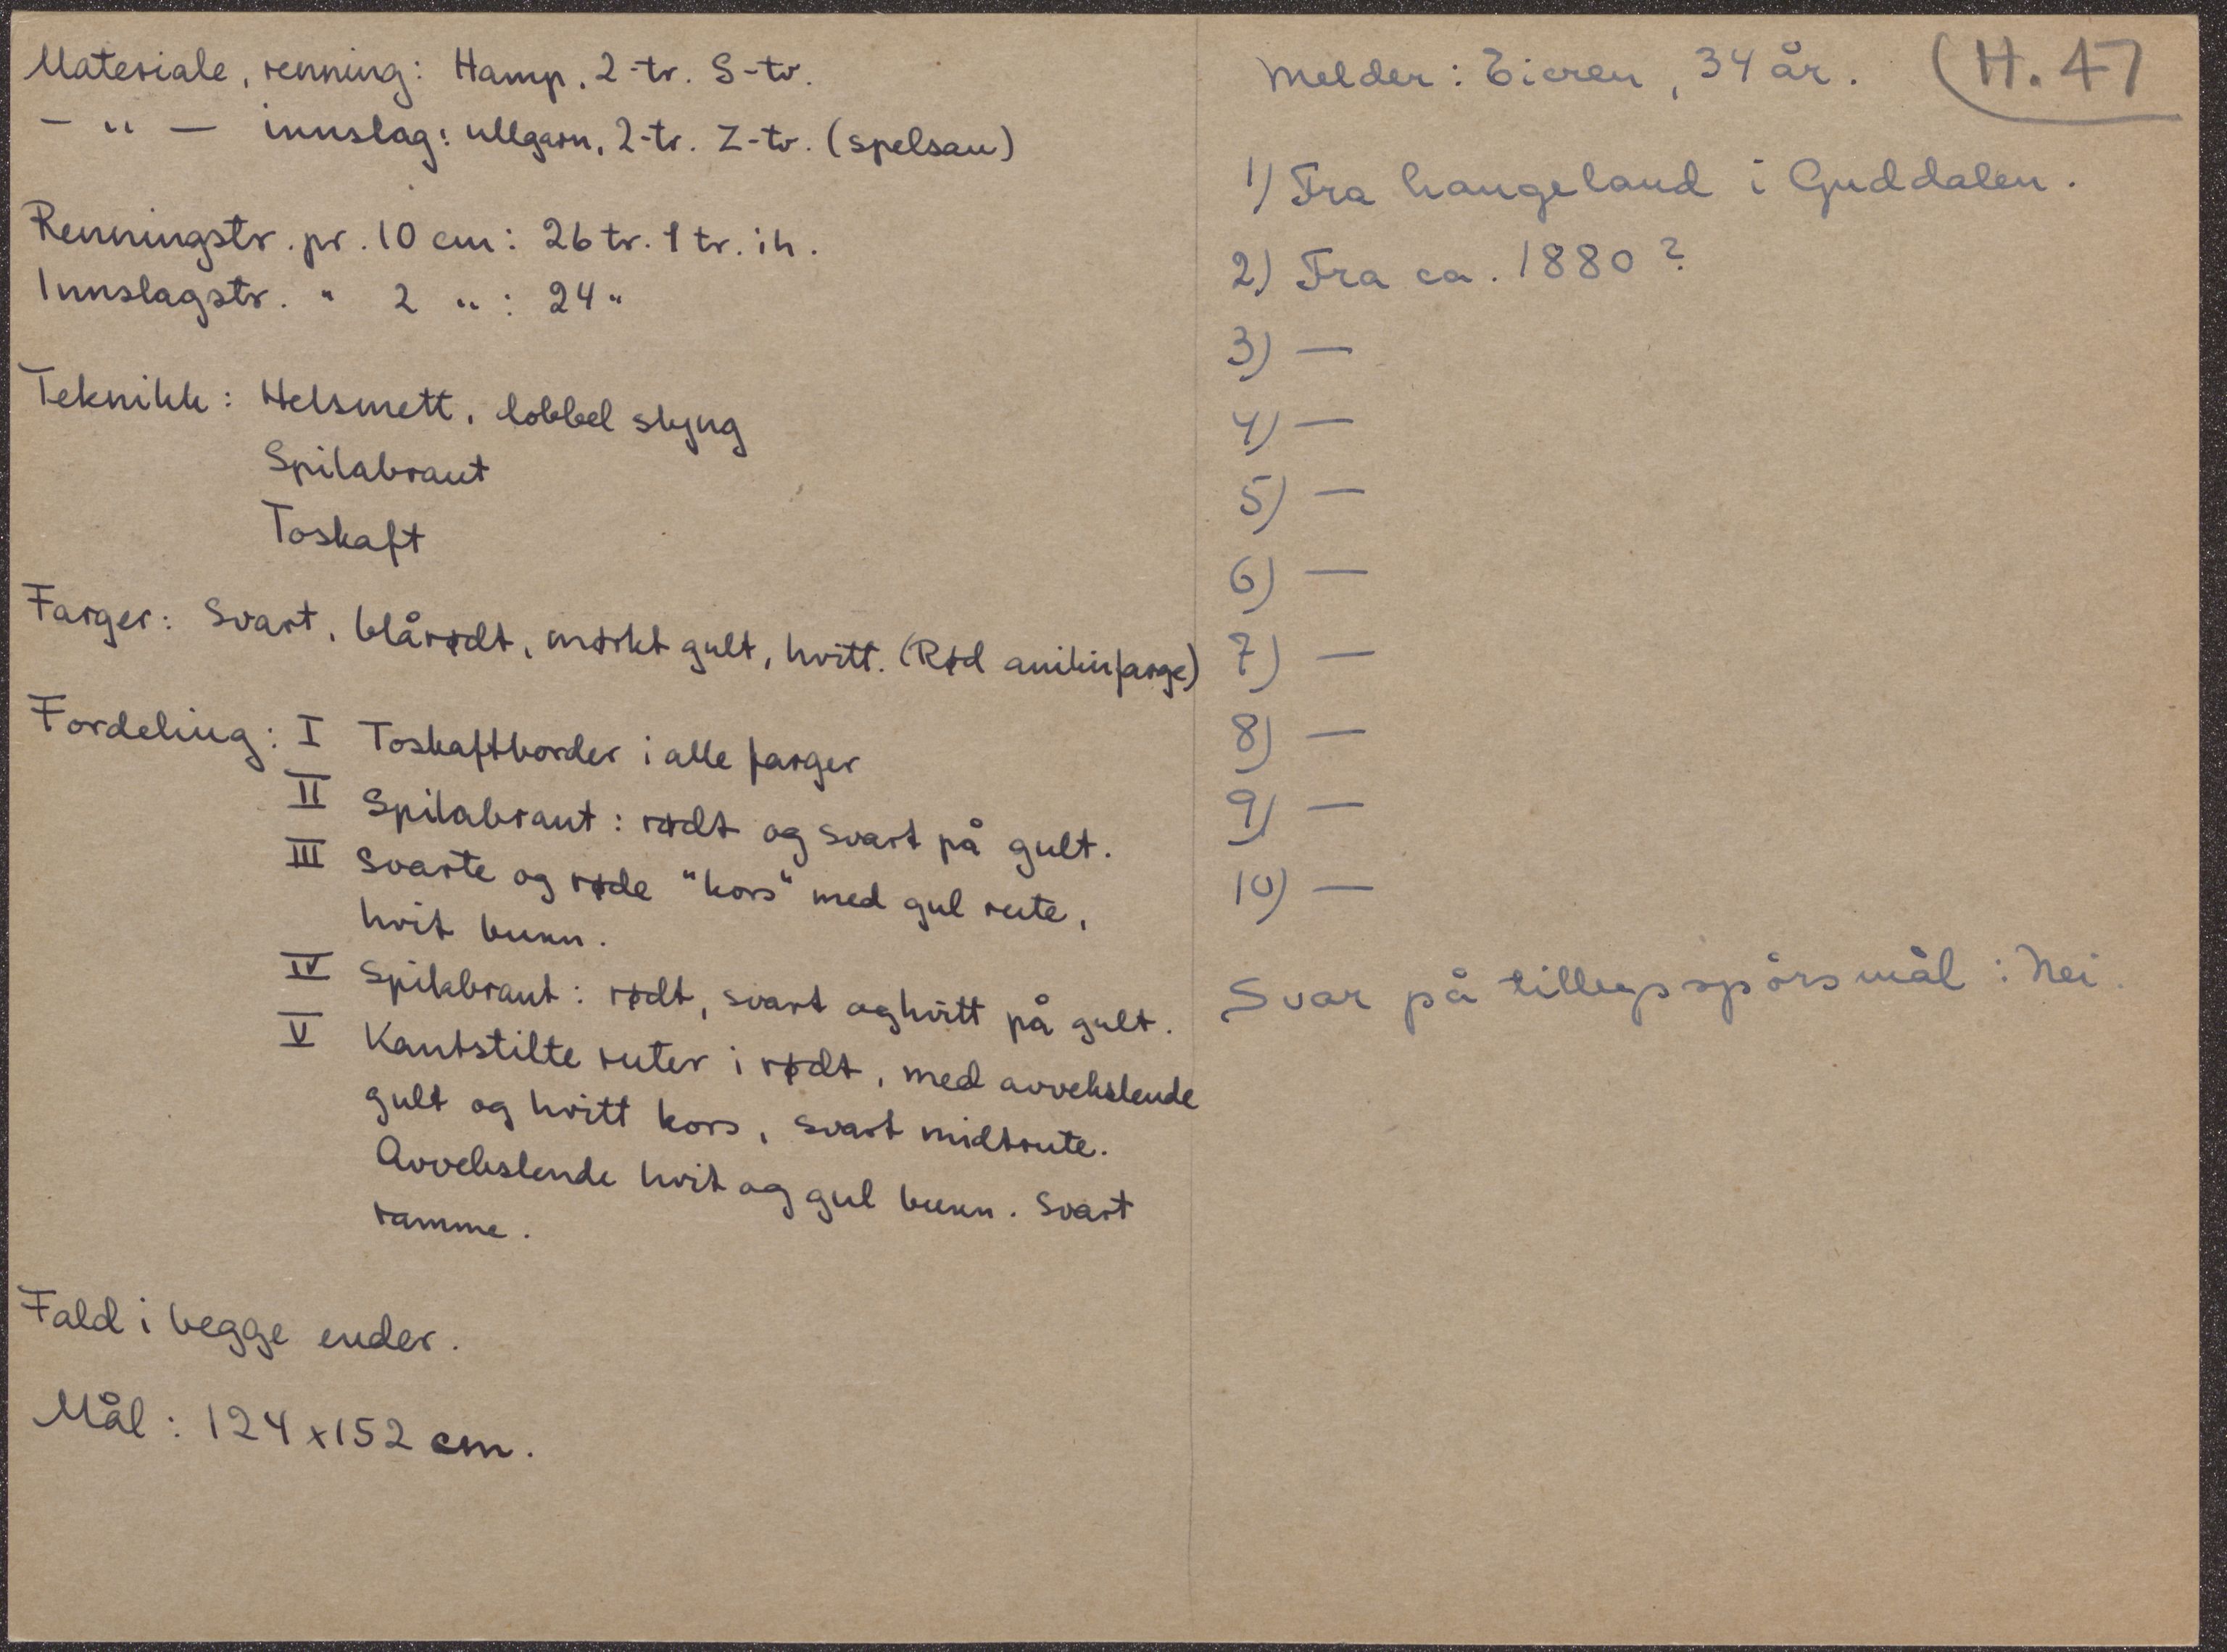 Materiale, renning: Hamp, 2-tr. S-tv.
- " - innslag: ullgarn, 2-tr. Z-tv. (spelsau)
Renningstr. pr. 10 cm: 26 tr. 1 tr. i h.
Innslagstr. " 2 " : 24 "
Teknikk: Helsmett, dobbel slyng
Spilabraut
Toskaft
Farger: Svart, blårødt, mørkt gult, hvitt. (Rød anilinfarge)
Fordeling: I Toskaftborder i alle farger
II Spilabraut: rødt og svart på gult.
III Svarte og røde "kors" med gul rute,
hvit bunn.
IV Spilabraut: rødt, svart og hvitt på gult.
V Kantstilte ruter i rødt, med avvekslende
gult og hvitt kors, svart midtrute.
Avvekslende hvit og gul bunn. Svart
ramme.
Fald i begge ender.
Mål: 124 x 152 cm.
Melder: Eieren, 34 år. (H. 47
1) Fra Haugeland i Guddalen.
2) Fra ca. 1880?
3) —
4) —
5) —
6) —
7) —
8) —
9) —
10) —
Svar på tilleggspørsmål: Nei.